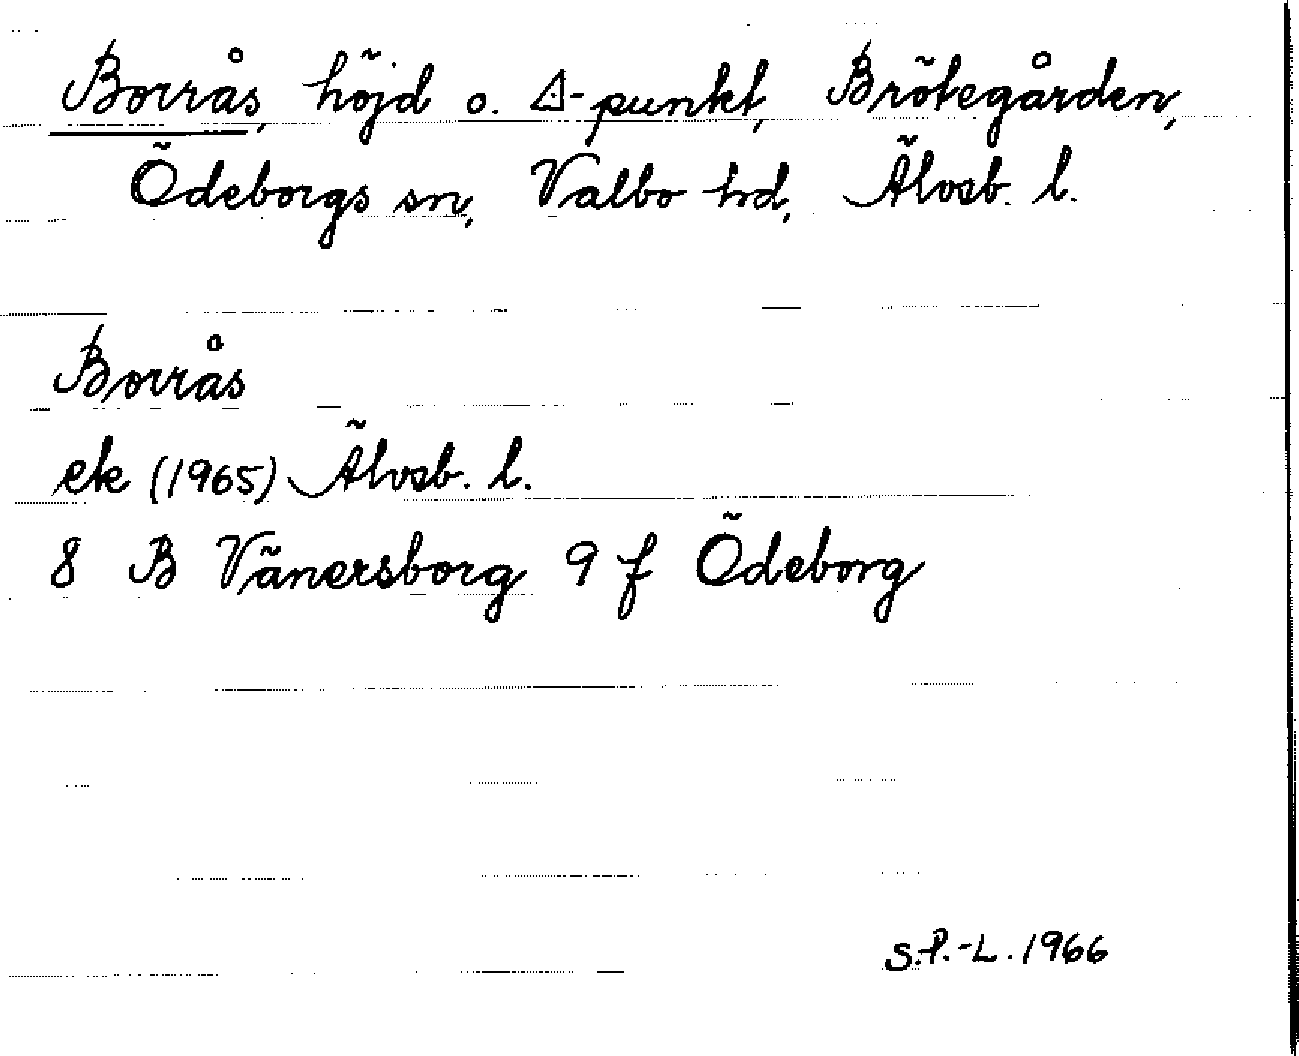 Borrås, höjd o. △-punkt, Brötegården,
Ödeborgs sn, Valbo hd, Älvsb. l.
Borrås
ek (1965) Älvsb. l.
8 B Vänersborg 9 f Ödeborg
S.P.-L. 1966